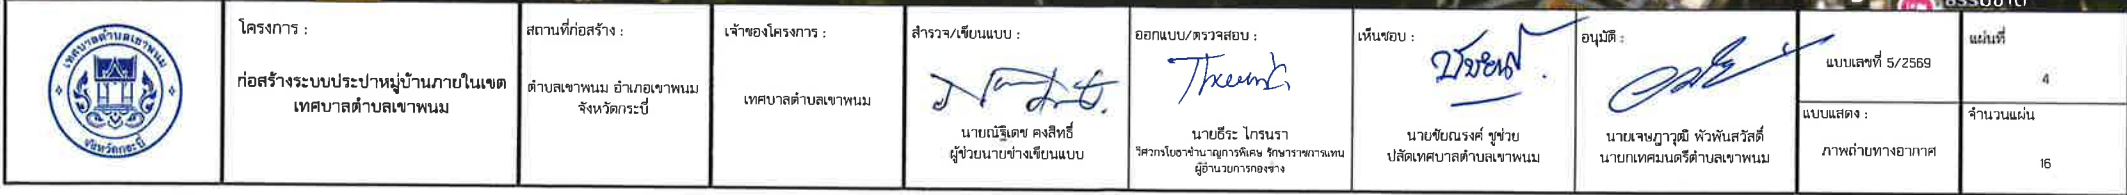 ธรรมชาติ
เทศบาลตำบลเขาพนม
จังหวัดกระบี่
โครงการ :
ก่อสร้างระบบประปาหมู่บ้านภายในเขต
เทศบาลตำบลเขาพนม
สถานที่ก่อสร้าง :
ตำบลเขาพนม อำเภอเขาพนม
จังหวัดกระบี่
เจ้าของโครงการ :
เทศบาลตำบลเขาพนม
สำรวจ/เขียนแบบ :
นายณัฐิเดช คงสิทธิ์
ผู้ช่วยนายช่างเขียนแบบ
ออกแบบ/ตรวจสอบ :
นายธีระ ไกรนรา
วิศวกรโยธาชำนาญการพิเศษ รักษาราชการแทน
ผู้อำนวยการกองช่าง
เห็นชอบ :
นายชัยณรงค์ ชูช่วย
ปลัดเทศบาลตำบลเขาพนม
อนุมัติ :
นายเจษฎาวุฒิ พัวพันสวัสดิ์
นายกเทศมนตรีตำบลเขาพนม
แบบเลขที่ 5/2569
แบบแสดง :
ภาพถ่ายทางอากาศ
แผ่นที่
4
จำนวนแผ่น
16